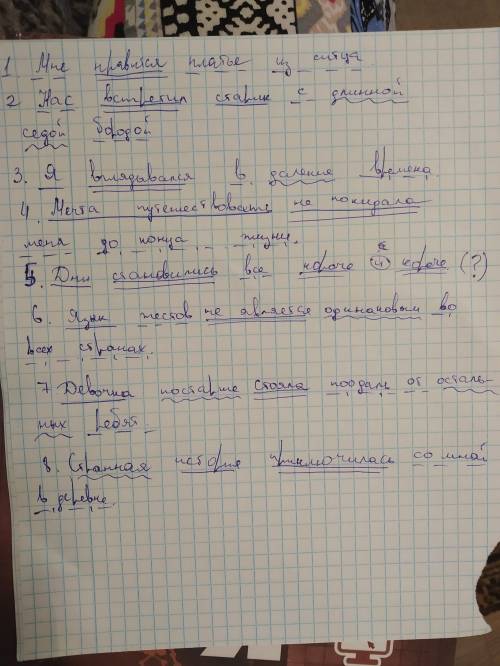 1 Мне нравится платье из ситца
2 Нас встретил старик с длинной
седой бородой
3. Я вглядывался в далекие времена.
4. Мечта путешествовать не покидала
меня до конца жизни.
5. Дни становились все короче и короче (?)
6. Язык жестов не является одинаковым во
всех странах.
7 Девочка постарше стояла поодаль от осталь-
ных ребят.
8. Странная история приключилась со мной
в деревне.